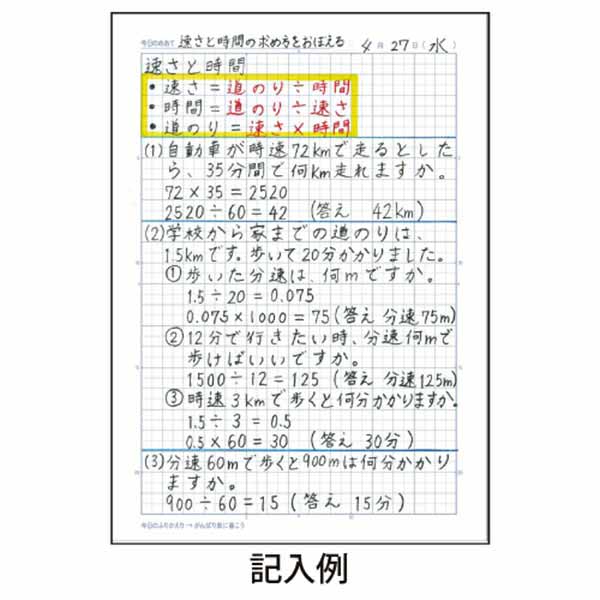 今日のめあて 速さと時間の求め方をおぼえる 4月27日(水)
速さと時間
• 速さ = 道のり÷時間
• 時間 = 道のり÷速さ
• 道のり = 速さ×時間
(1)自動車が時速72kmで走るとした
ら、35分間で何km走れますか。
72×35=2520
2520÷60=42 (答え 42km)
(2)学校から家までの道のりは、
1.5kmです。歩いて20分かかりました。
①歩いた分速は、何mですか。
1.5÷20=0.075
0.075×1000=75(答え 分速75m)
②12分で行きたい時、分速何mで
歩けばいいですか。
1500÷12=125 (答え 分速125m)
③時速3kmで歩くと何分かかりますか。
1.5÷3=0.5
0.5×60=30 (答え 30分)
(3)分速60mで歩くと900mは何分かかり
ますか。
900÷60=15 (答え 15分)
今日のふりかえり→がんばり表に書こう
記入例